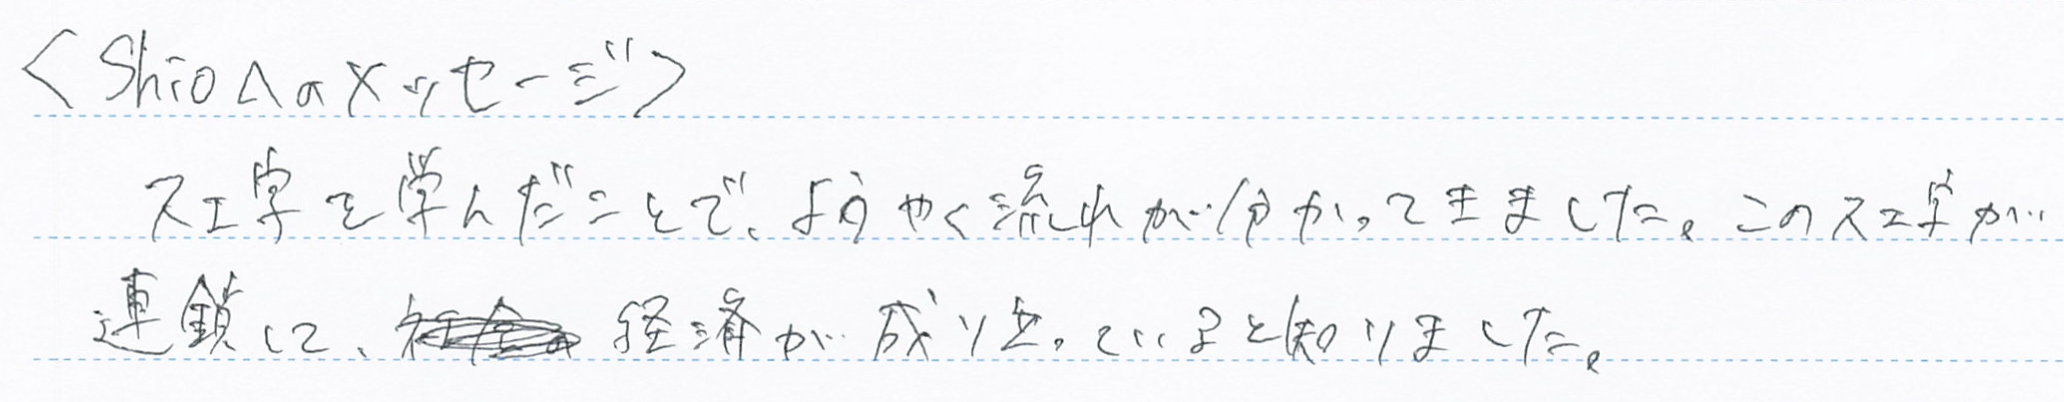 <Shioへのメッセージ>
スエ字を学んだことで、ようやく流れが分かってきました。このスエ字が
連鎖して、経済が成り立っていると知りました。